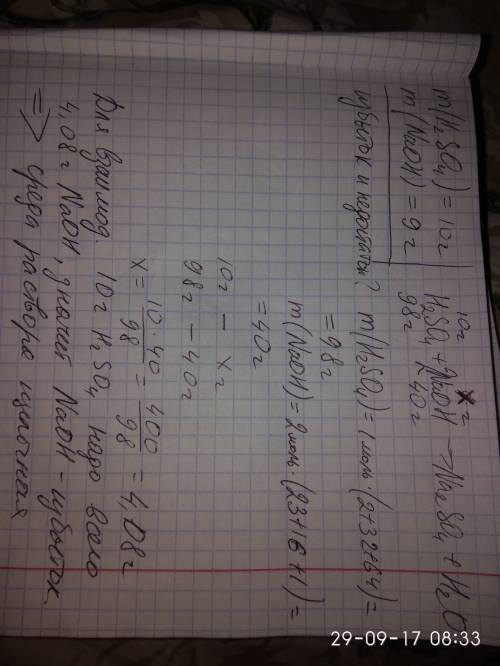 m(H₂SO₄) = 10г
m(NaOH) = 9г
избыток и недостаток?
10г xг
H₂SO₄ + 2NaOH → Na₂SO₄ + H₂O
98г 40г
m(H₂SO₄) = 1моль · (2+32+64) =
= 98г
m(NaOH) = 2моль · (23+16+1) =
= 40г
10г – xг
98г – 40г
x = 10·40/98 = 400/98 = 4,08г
Для взаимод. 10г H₂SO₄ надо всего
4,08г NaOH, значит NaOH – избыток
=> среда раствора щелочная
29-09-17 08:33